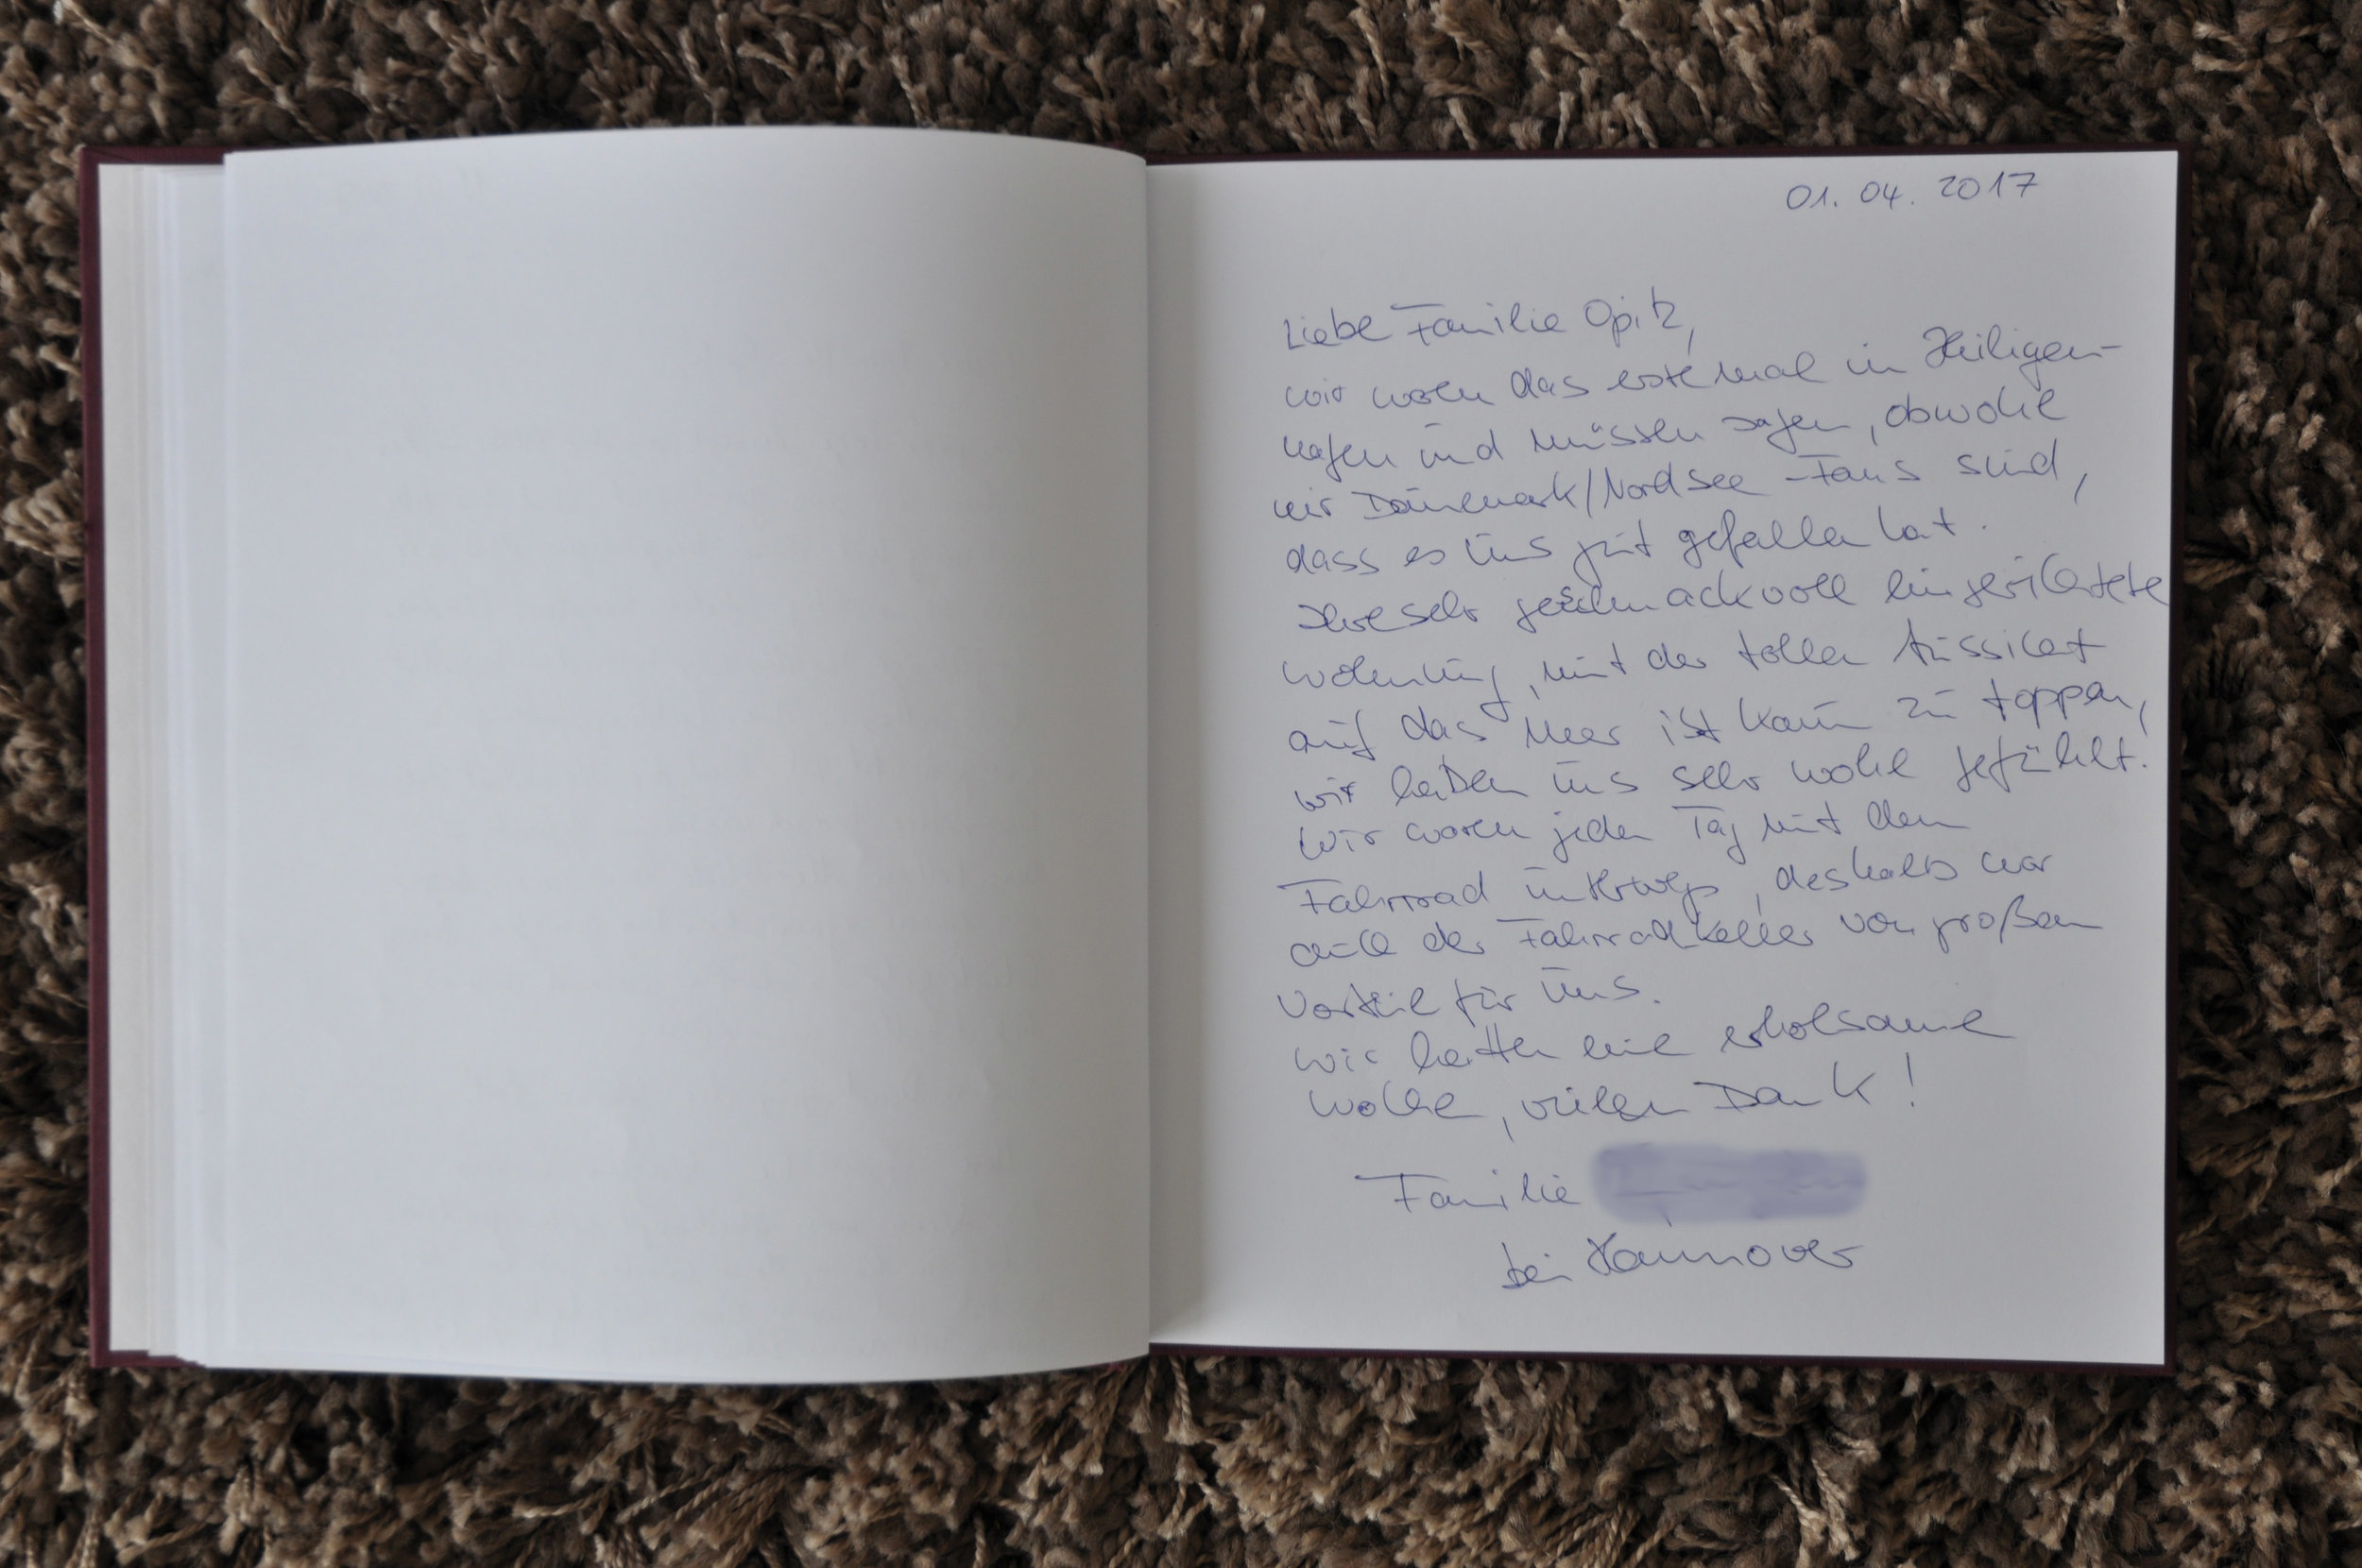 01. 04. 2017
Liebe Familie Opitz,
wir waren das erste mal in Heiligen-
hafen und müssen sagen, obwohl
wir Dänemark/Nordsee-Fans sind,
dass es uns gut gefallen hat.
Ihre sehr geschmackvoll eingerichtete
Wohnung, mit der tollen Aussicht
auf das Meer ist kaum zu toppen,
wir haben uns sehr wohl gefühlt.
Wir waren jeden Tag mit dem
Fahrrad unterwegs, deshalb war
auch der Fahrradkeller von großem
Vorteil für uns.
Wir hatten eine erholsame
Woche, vielen Dank!
Familie
bei Hannover